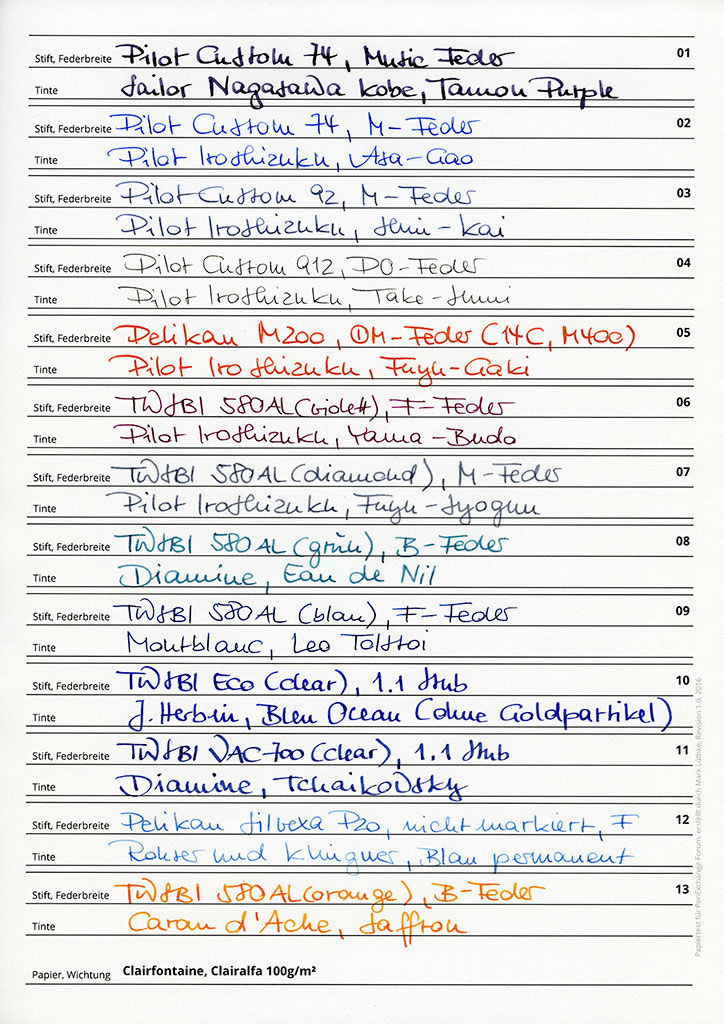 Stift, Federbreite Pilot Custom 74, Music Feder 01
Tinte Sailor Nagasawa Kobe, Tamon Purple
Stift, Federbreite Pilot Custom 74, M-Feder 02
Tinte Pilot Iroshizuku, Asa-Gao
Stift, Federbreite Pilot Custom 92, M-Feder 03
Tinte Pilot Iroshizuku, Shin-Kai
Stift, Federbreite Pilot Custom 912, PO-Feder 04
Tinte Pilot Iroshizuku, Take-Sumi
Stift, Federbreite Pelikan M200, OM-Feder (14C, M400) 05
Tinte Pilot Iroshizuku, Fuyu-Gaki
Stift, Federbreite TWSBI 580AL (violett), F-Feder 06
Tinte Pilot Iroshizuku, Yama-Budo
Stift, Federbreite TWSBI 580AL (diamond), M-Feder 07
Tinte Pilot Iroshizuku, Fuyu-Syogun
Stift, Federbreite TWSBI 580AL (grün), B-Feder 08
Tinte Diamine, Eau de Nil
Stift, Federbreite TWSBI 580AL (blau), F-Feder 09
Tinte Montblanc, Leo Tolstoi
Stift, Federbreite TWSBI Eco (clear), 1.1 Stub 10
Tinte J. Herbin, Bleu Ocean (ohne Goldpartikel)
Stift, Federbreite TWSBI VAC-700 (clear), 1.1 Stub 11
Tinte Diamine, Tchaikovsky
Stift, Federbreite Pelikan Silvexa P20, nicht markiert, F 12
Tinte Rohrer und Klingner, Blau permanent
Stift, Federbreite TWSBI 580AL (orange), B-Feder 13
Tinte Caran d'Ache, Saffron
Papier, Wichtung Clairfontaine, Clairalfa 100g/m²
Papiertest für PenExchange Forum, erstellt durch Mark Lüthke, Revision 1.0, 2016